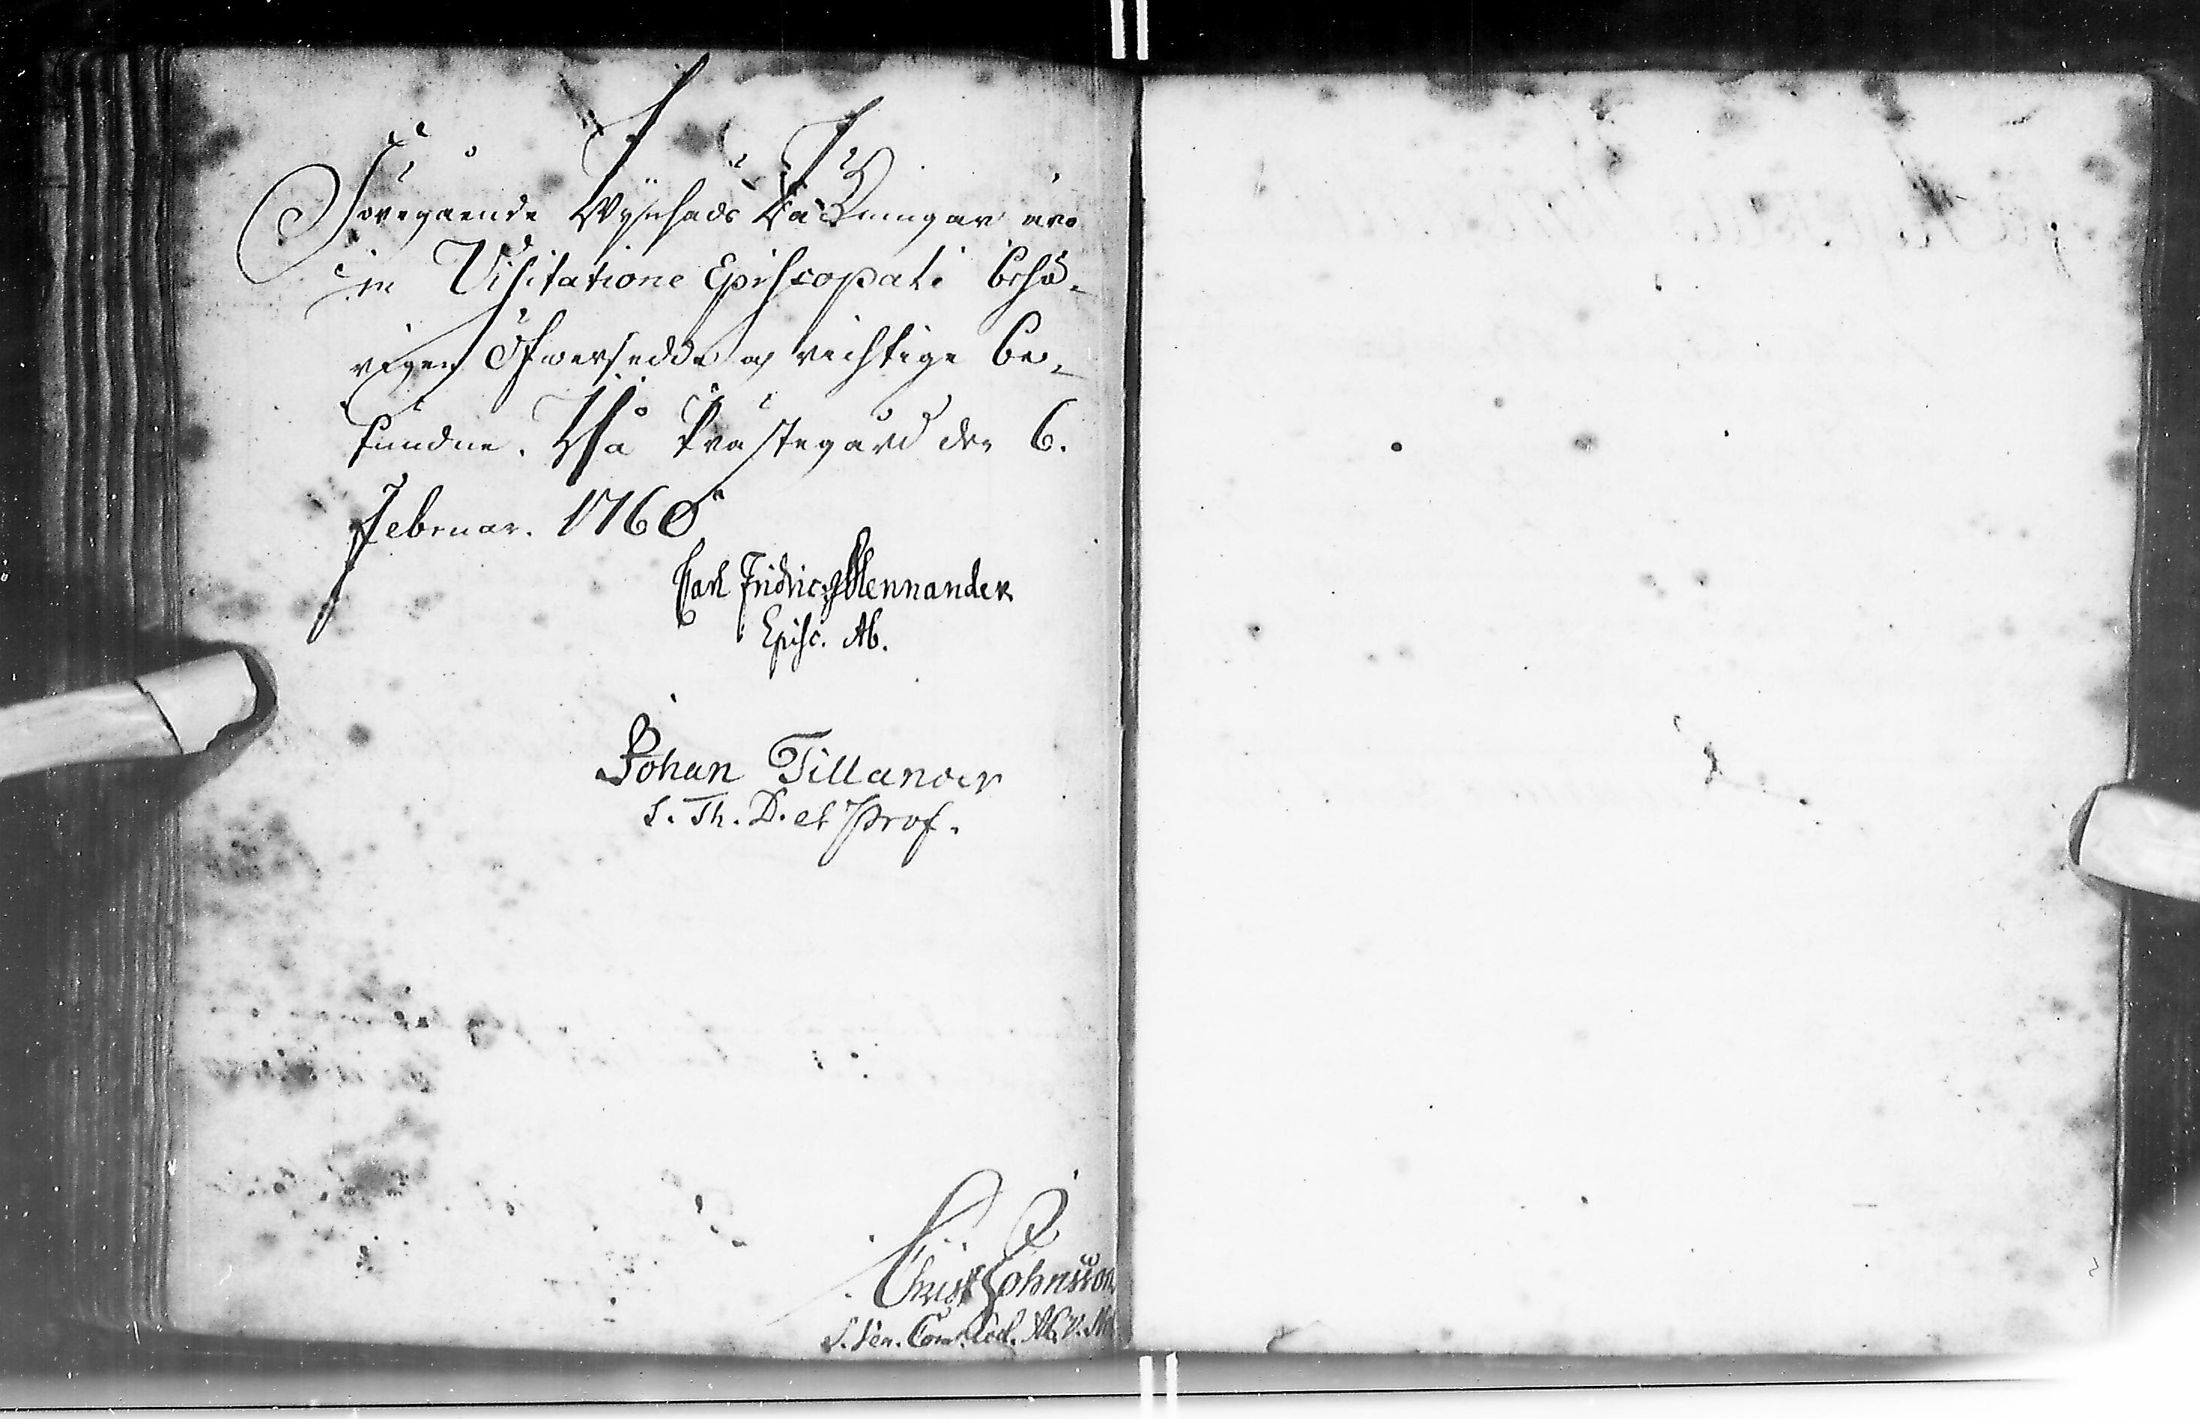 Föregående Kyrkiors Räkningar äro
in Visitatione Episcopali behö-
rigen öfwersedda och richtige be-
fundne. Präste gård den 6.
Februar. 1760
Carl Fridric Mennander
Episc. Ab.
Johan Tillander
S. Th. D. et Prof.
Christ Johnsson
S. Ven. Con.